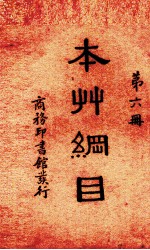 第六冊
本艸綱目
商務印書館發行